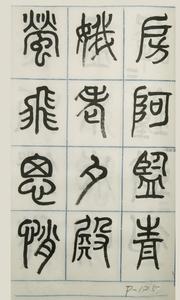 房阿監青
娥老夕殿
螢飛思悄
P-125